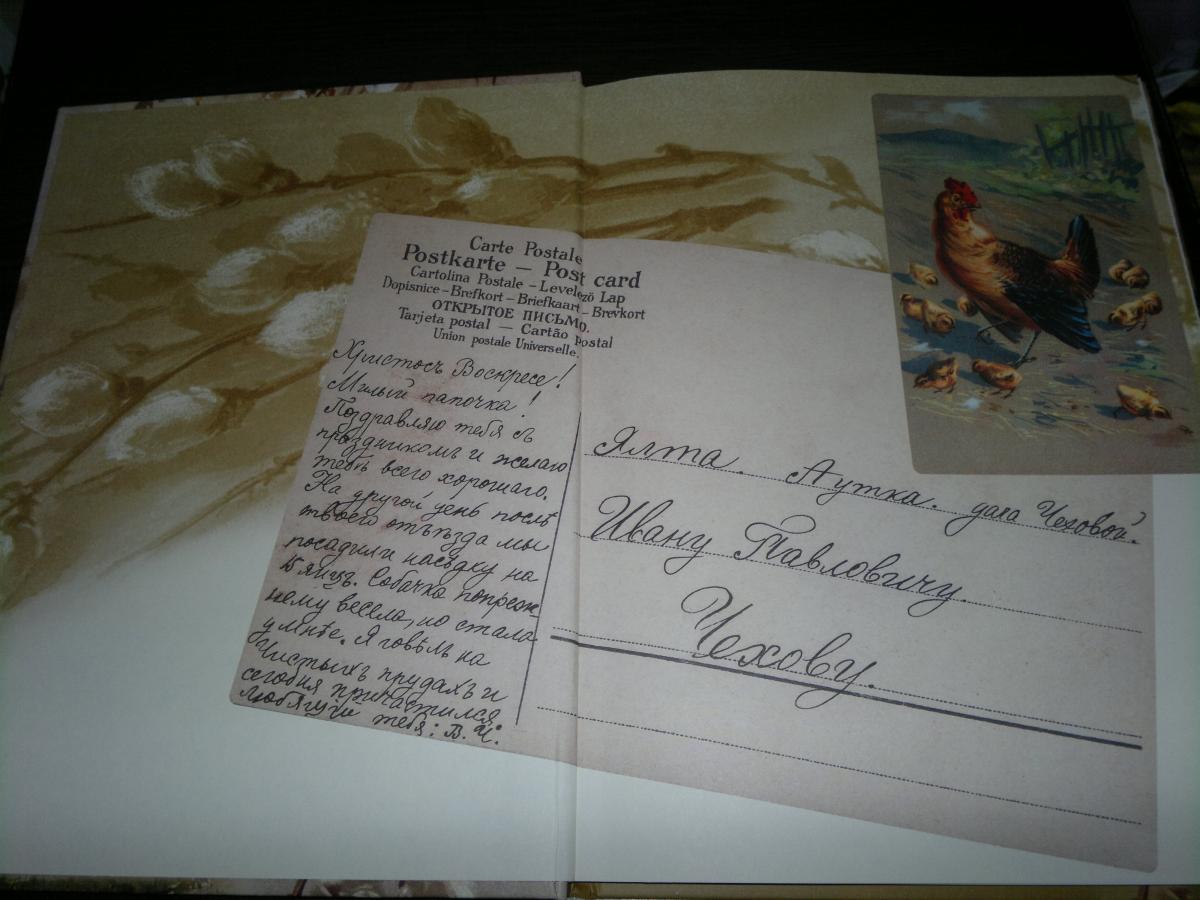 Carte Postale
Postkarte — Post card
Cartolina Postale – Levelező Lap
Dopisnice – Brefkort – Briefkaart – Brevkort
ОТКРЫТОЕ ПИСЬМО.
Tarjeta postal — Cartão postal
Union postale Universelle.
Христосъ Воскресе!
Милый папочка!
Поздравляю тебя съ
праздникомъ и желаю
тебѣ всего хорошаго.
На другой день послѣ
твоего отъѣзда мы
посадили насѣдку на
15 яицъ. Собачка попреж-
нему весела, но стала
умнѣе. Я говѣлъ на
Чистыхъ прудахъ и
сегодня причастился
Любящій тебя: В. Ч.
Ялта. Аутка. дача Чеховой.
Ивану Павловичу
Чехову.